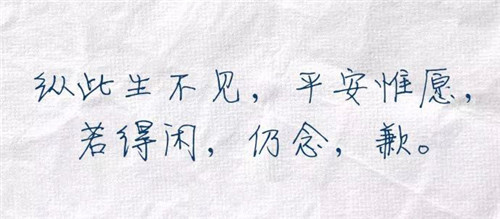 纵此生不见，平安惟愿，
若得闲，仍念，歉。